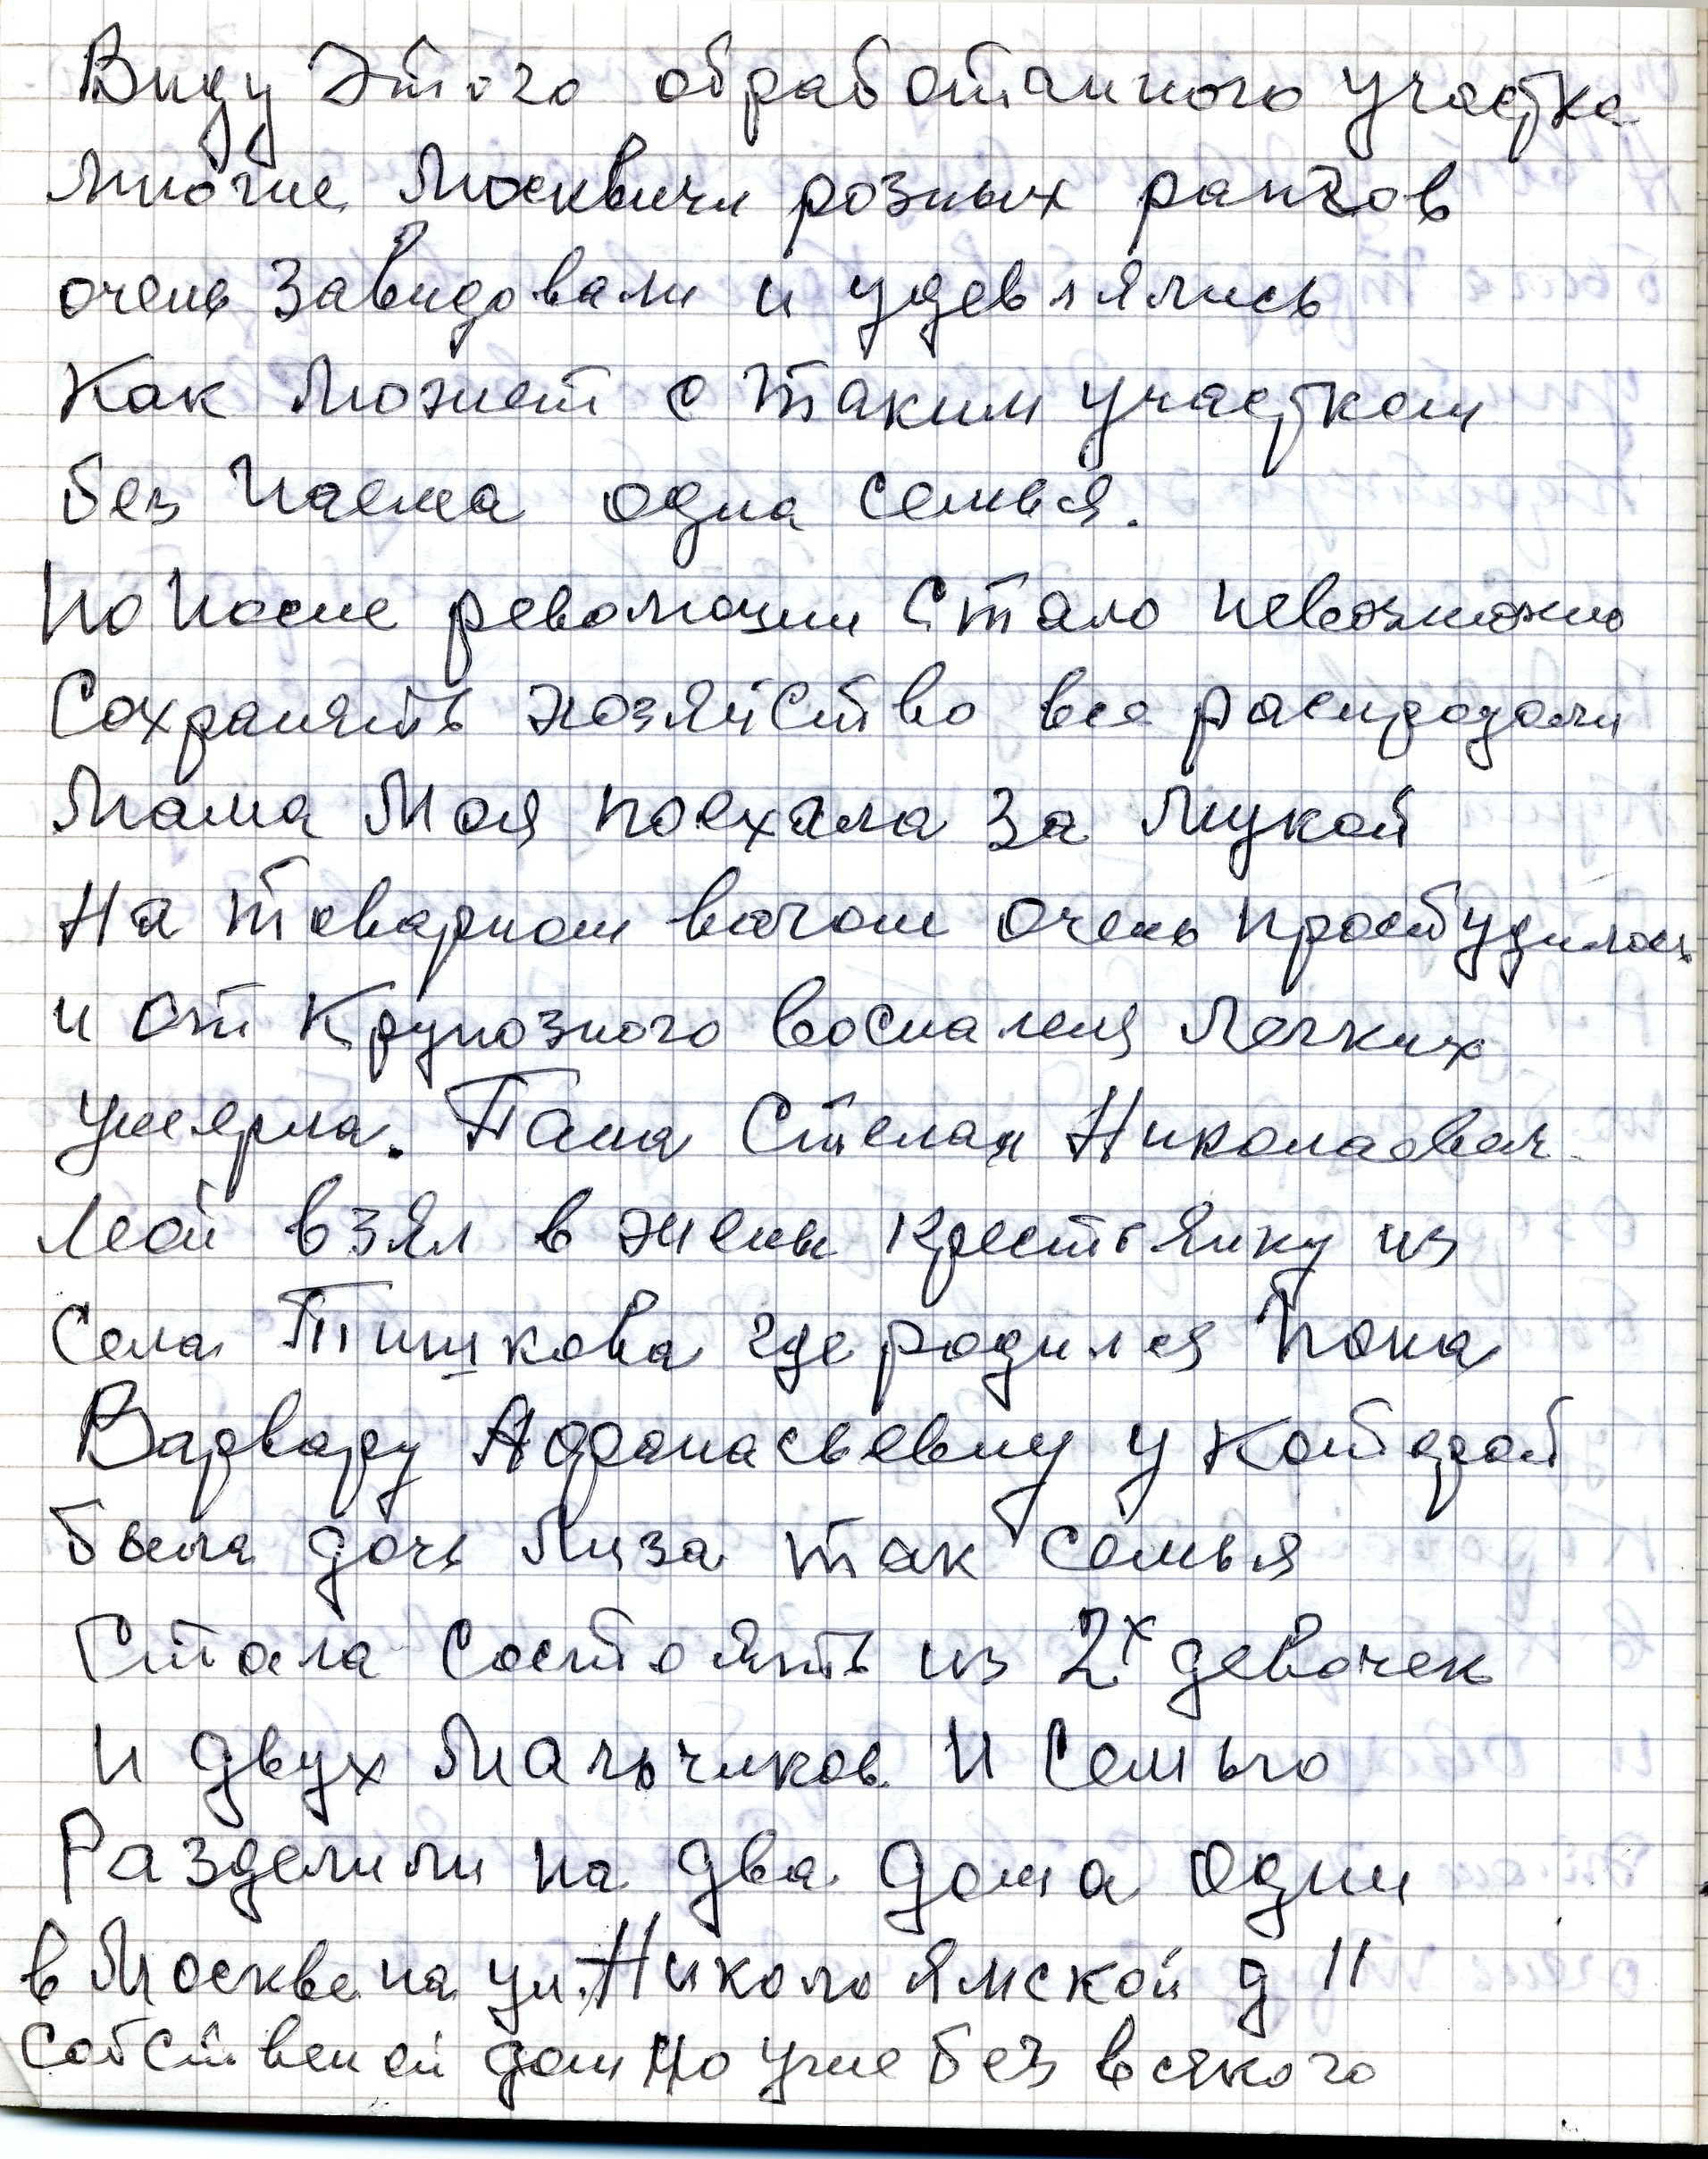 Виду этого обработанного участка
многие Москвичи розных рангов
очень завидовали и удевлялись
Как может с таким участком
без наема одна семья.
Но после революции стало невозможно
Сохранять хозяйство все распродали
Мама Моя поехала за мукой
На товарном вагоне очень простудилась
и от Крупозного воспаленя Легких
умерла. Папа Степан Николаевич
Мой взял в жены крестьянку из
Села Тишкова где родился папа
Варвару Афанасьевну у которой
была дочь Лиза так семья
Стала состоять из 2х девочек
и двух Мальчиков И Семью
Разделили на два дома один
в Москве на ул. Николоямской д 11
Собственой дом но уже без всякого